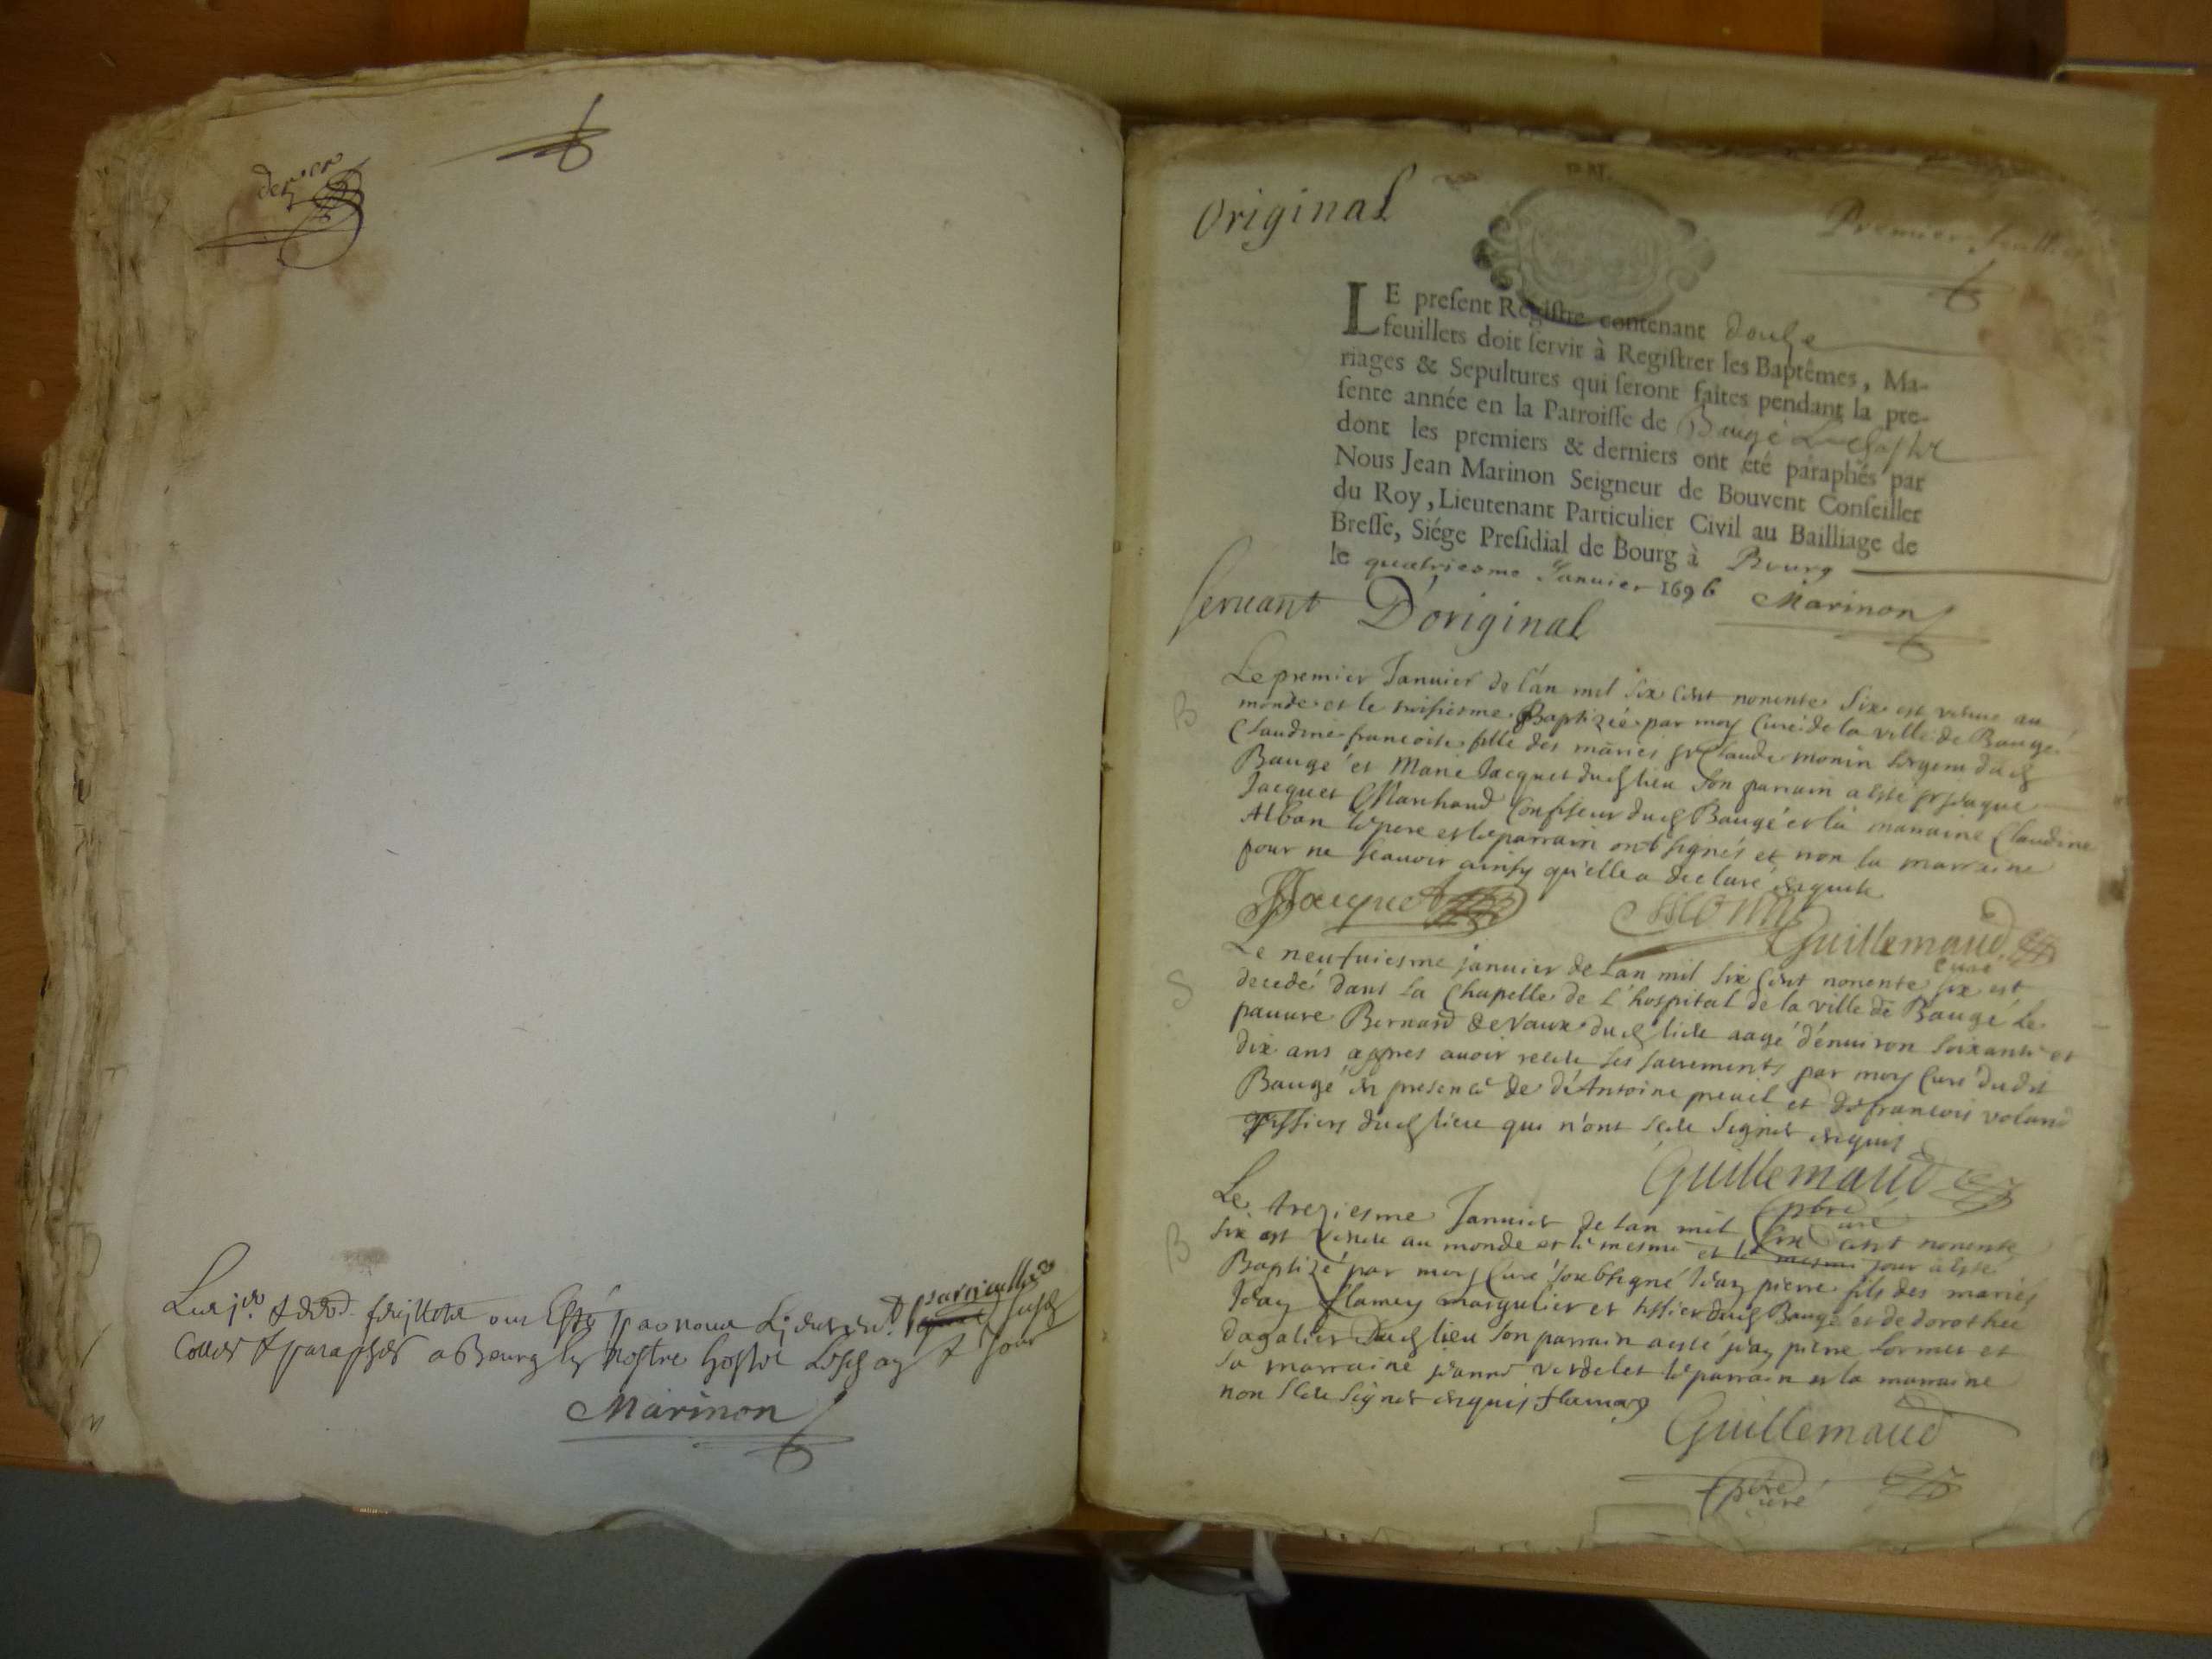 der.er
Les j.er & der. feuillets ont esté par nous Lieutenant particullier susd
cottés & paraphés a Bourg en nostre hostel lesd an & jour
Marinon
Original
Premier feuillet
LE preſent Regiſtre contenant douze
feuillets doit ſervir à Regiſtrer les Baptêmes, Ma-
riages & Sepultures qui ſeront faites pendant la pre-
ſente année en la Parroiſſe de Baugé
dont les premiers & derniers ont été paraphés par
Nous Jean Marinon Seigneur de Bouvent Conſeiller
du Roy, Lieutenant Particulier Civil au Bailliage de
Breſſe, Siége Preſidial de Bourg à Bourg
le quatriesme Januier 1696 Marinon
seruant D'original
Le premier Januier de l'an mil six cent nonente six est venue au
B monde et le troisiesme Baptizée par moy Curé de la ville de Baugé
Claudine francoise fille des mariés sr Claude monin sergent dud
Baugé et Marie Jacquet dud lieu son parrain a esté sr Jaque
Jacquet Marchand Confiseur dud Baugé et la marraine Claudine
Alban le pere et le parrain ont signés et non la marraine
pour ne scauoir ainsy qu'elle a declaré enquise
Jacquet Monin Guillemaud
curé
Le neufuiesme januier de lan mil six cent nonente six est
S decedé dans la Chapelle de l'hospital de la ville de Baugé le
pauure Bernard deVaux dud lieu aagé d'enuiron soixante et
dix ans apres auoir receu ses sacrements par moy Curé dudit
Baugé en presence de de Antoine preuel et de francois voland
tissiers dud lieu qui n'ont sceu signer enquis
Guillemaud
pbre curé
Le treziesme Januier de lan mil six cent nonente
B six est venu au monde et le mesme et le mesme jour a esté
Baptizé par moy Curé soubsigné Jean pierre fils des mariés
Jean flamey marguilier et tissier dud Baugé et de dorothée
dagalier dud lieu son parrain a esté jean pierre Lormet et
sa marraine jeanne verdelet le parrain et la marraine
non sceu signer enquis flamey
Guillemaud
pbre curé